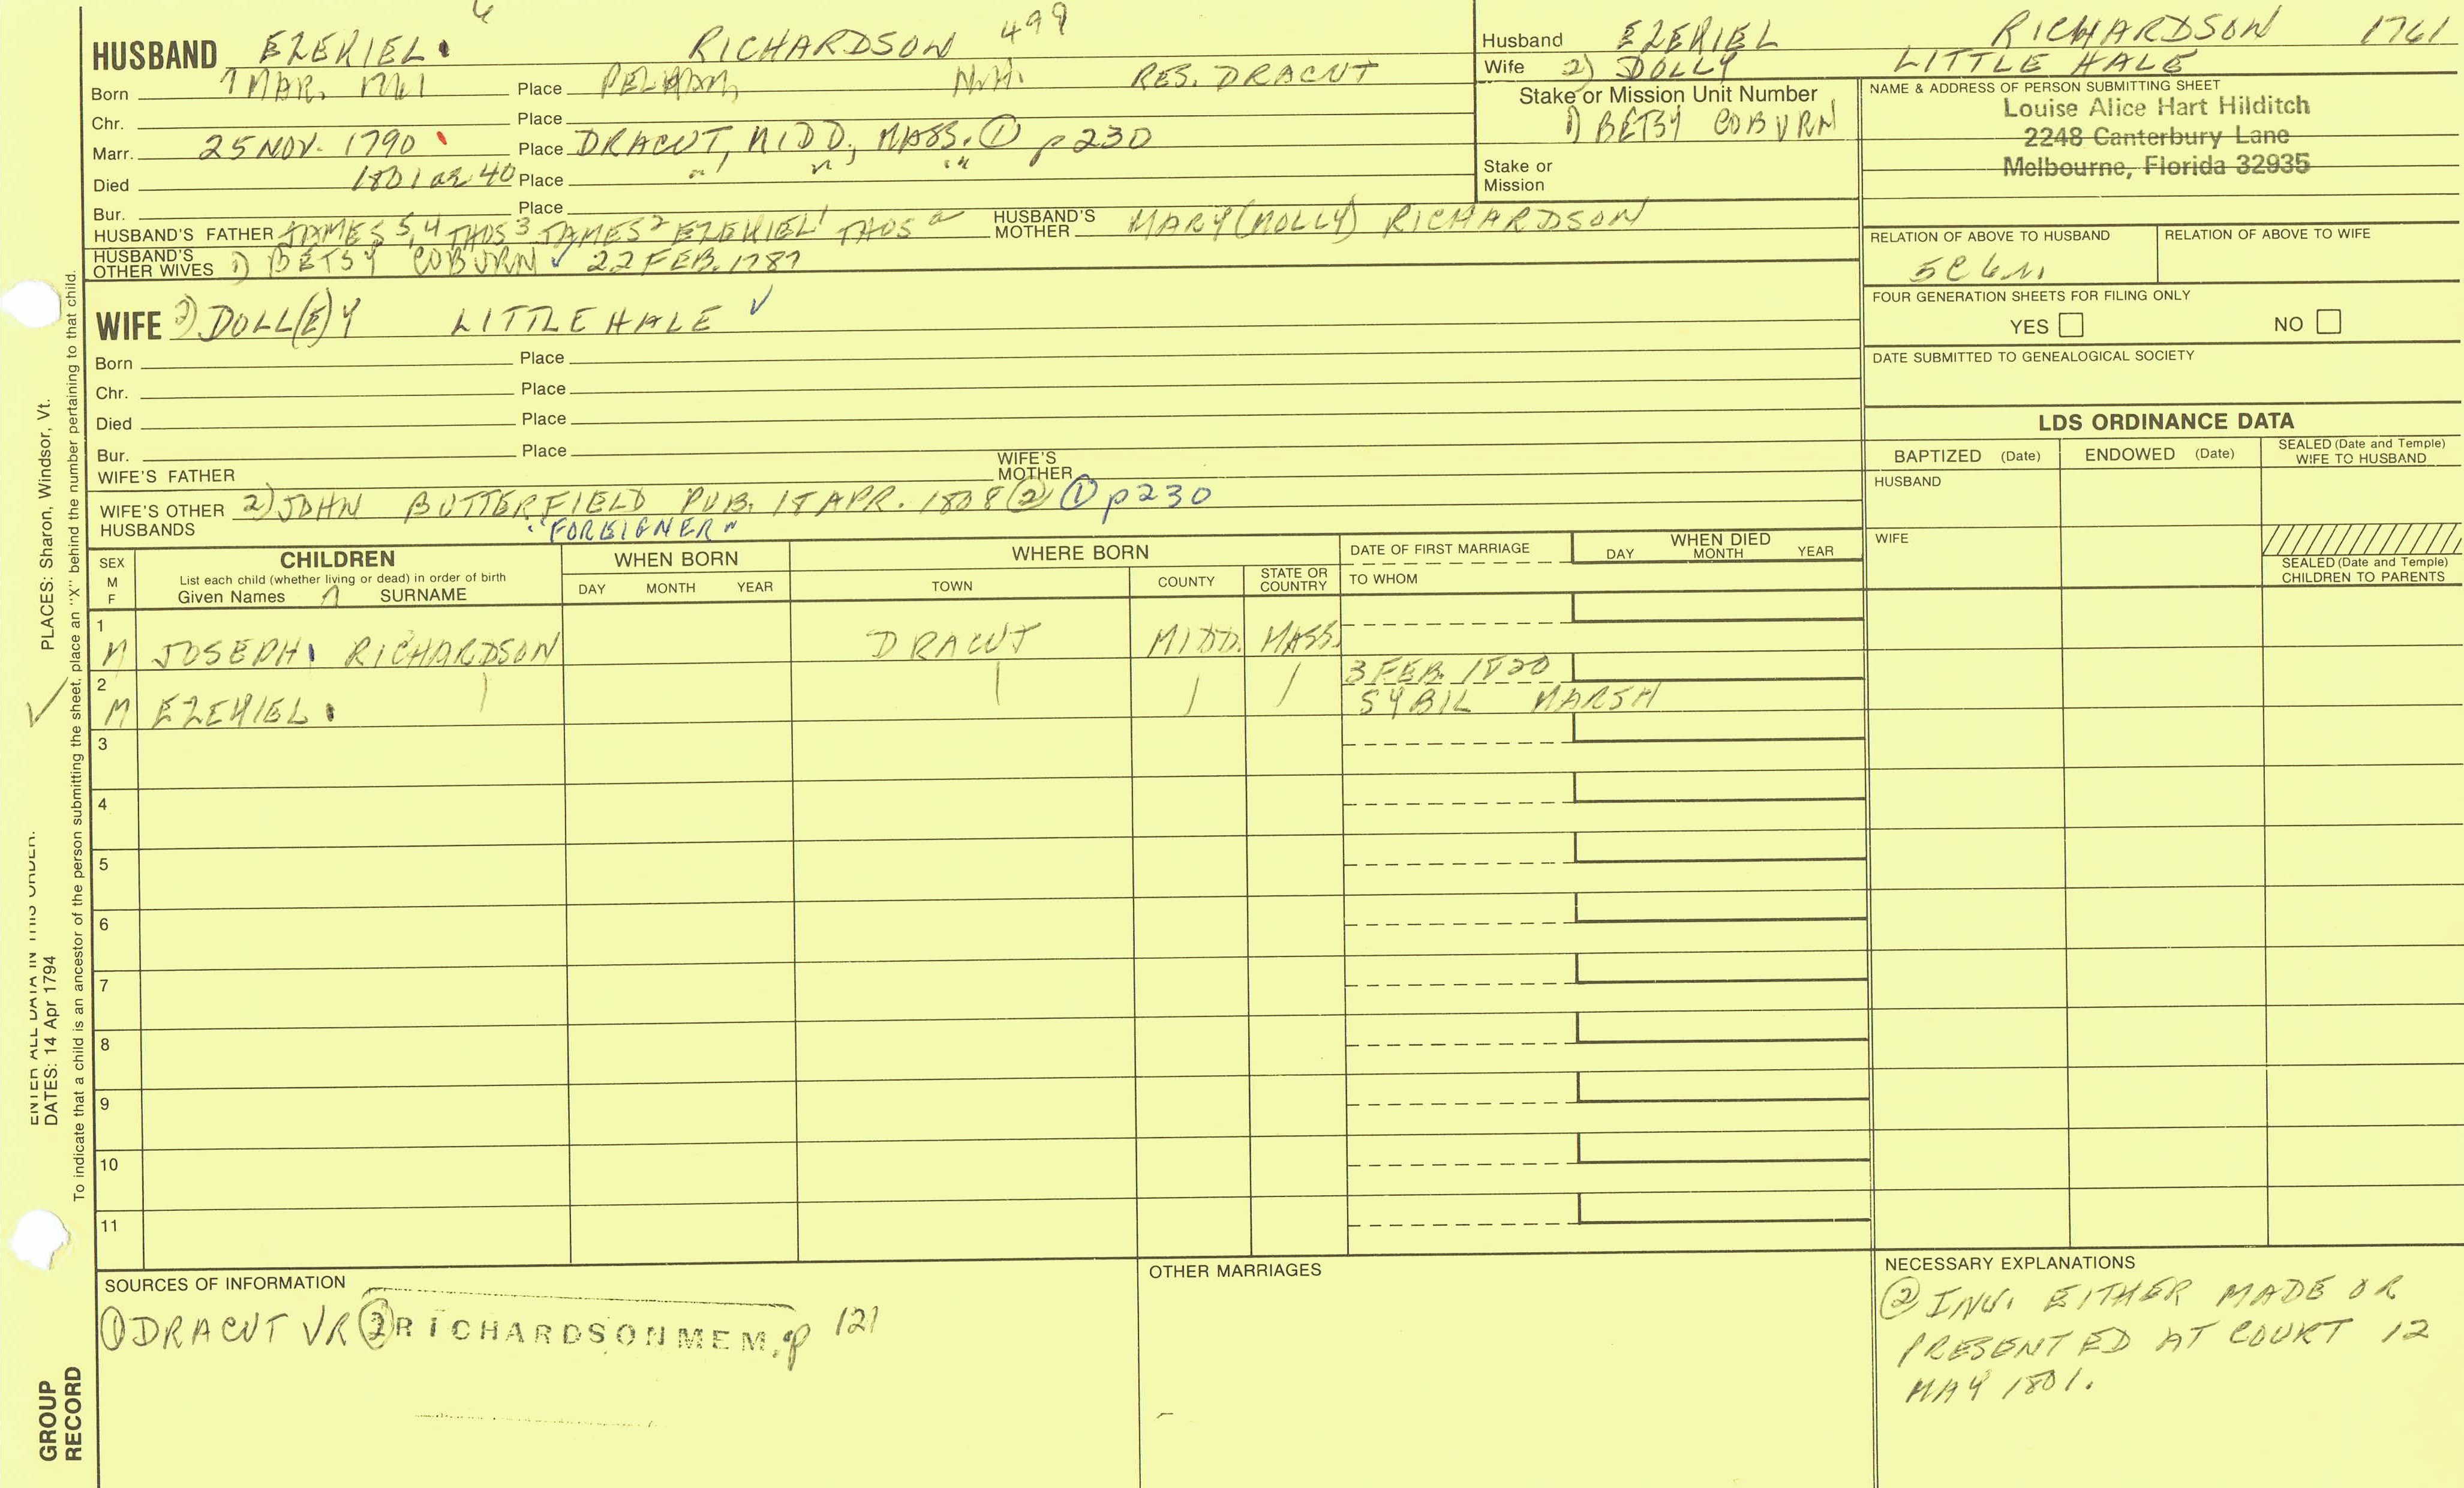 6
HUSBAND EZEKIEL RICHARDSON 499
Born 7 MAR. 1761 Place PELHAM, N.H. RES. DRACUT
Chr. Place
Marr. 25 NOV. 1790 Place DRACUT, MIDD, MASS. ① p 230
Died 1801 OR 40 Place " " "
Bur. Place
HUSBAND'S FATHER JAMES 5,4 THOS 3 JAMES 2 EZEKIEL 1 THOS a HUSBAND'S MOTHER MARY (MOLLY) RICHARDSON
HUSBAND'S OTHER WIVES 1) BETSY COBURN ✓ 22 FEB. 1787
WIFE 2) DOLL(E)Y LITTLEHALE ✓
Born Place
Chr. Place
Died Place
Bur. Place
WIFE'S FATHER WIFE'S MOTHER
WIFE'S OTHER HUSBANDS 2) JOHN BUTTERFIELD PUB. 18 APR. 1808 ② ① p 230
"FOREIGNER"
Husband EZEKIEL RICHARDSON 1761
Wife 2) DOLLY LITTLE HALE
Stake or Mission Unit Number
1) BETSY COBURN
Stake or Mission
NAME & ADDRESS OF PERSON SUBMITTING SHEET
Louise Alice Hart Hilditch
2248 Canterbury Lane
Melbourne, Florida 32935
RELATION OF ABOVE TO HUSBAND RELATION OF ABOVE TO WIFE
5C6
FOUR GENERATION SHEETS FOR FILING ONLY
YES NO
DATE SUBMITTED TO GENEALOGICAL SOCIETY
LDS ORDINANCE DATA
BAPTIZED (Date) ENDOWED (Date) SEALED (Date and Temple) WIFE TO HUSBAND
HUSBAND
WIFE
SEALED (Date and Temple) CHILDREN TO PARENTS
SEX M F
CHILDREN
List each child (whether living or dead) in order of birth
Given Names SURNAME
WHEN BORN
DAY MONTH YEAR
WHERE BORN
TOWN COUNTY STATE OR COUNTRY
DATE OF FIRST MARRIAGE
TO WHOM
WHEN DIED
DAY MONTH YEAR
1 M JOSEPH RICHARDSON DRACUT MIDD. MASS.
2 M EZEKIEL 3 FEB. 1820
SYBIL MARSH
3
4
5
6
7
8
9
10
11
SOURCES OF INFORMATION
① DRACUT VR ② RICHARDSON MEM. p 121
OTHER MARRIAGES
NECESSARY EXPLANATIONS
② INV. EITHER MADE OR
PRESENTED AT COURT 12
MAY 1801.
ENTER ALL DATA IN THIS ORDER:
DATES: 14 Apr 1794
PLACES: Sharon, Windsor, Vt.
To indicate that a child is an ancestor of the person submitting the sheet, place an "X" behind the number pertaining to that child.
GROUP
RECORD